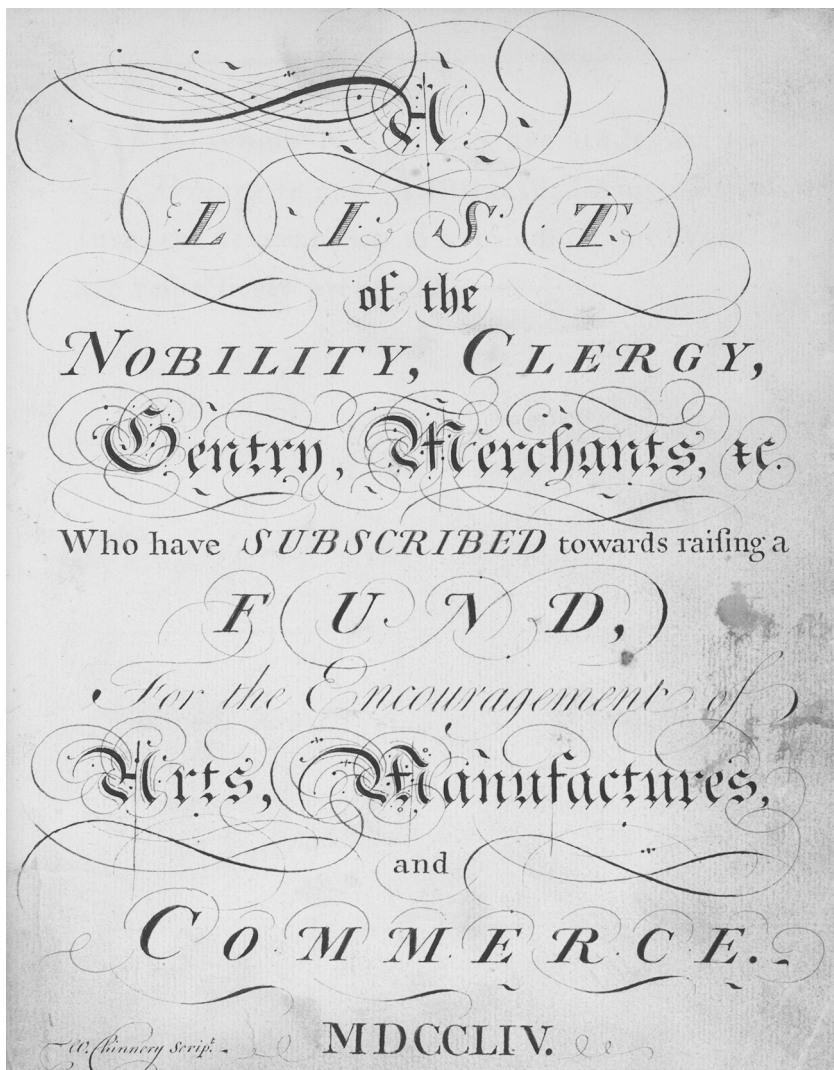 A
LIST
of the
NOBILITY, CLERGY,
Gentry, Merchants, &c.
Who have SUBSCRIBED towards raiſing a
FUND,
For the Encouragement of
Arts, Manufactures,
and
COMMERCE.
MDCCLIV.
W. Chinnery Script.